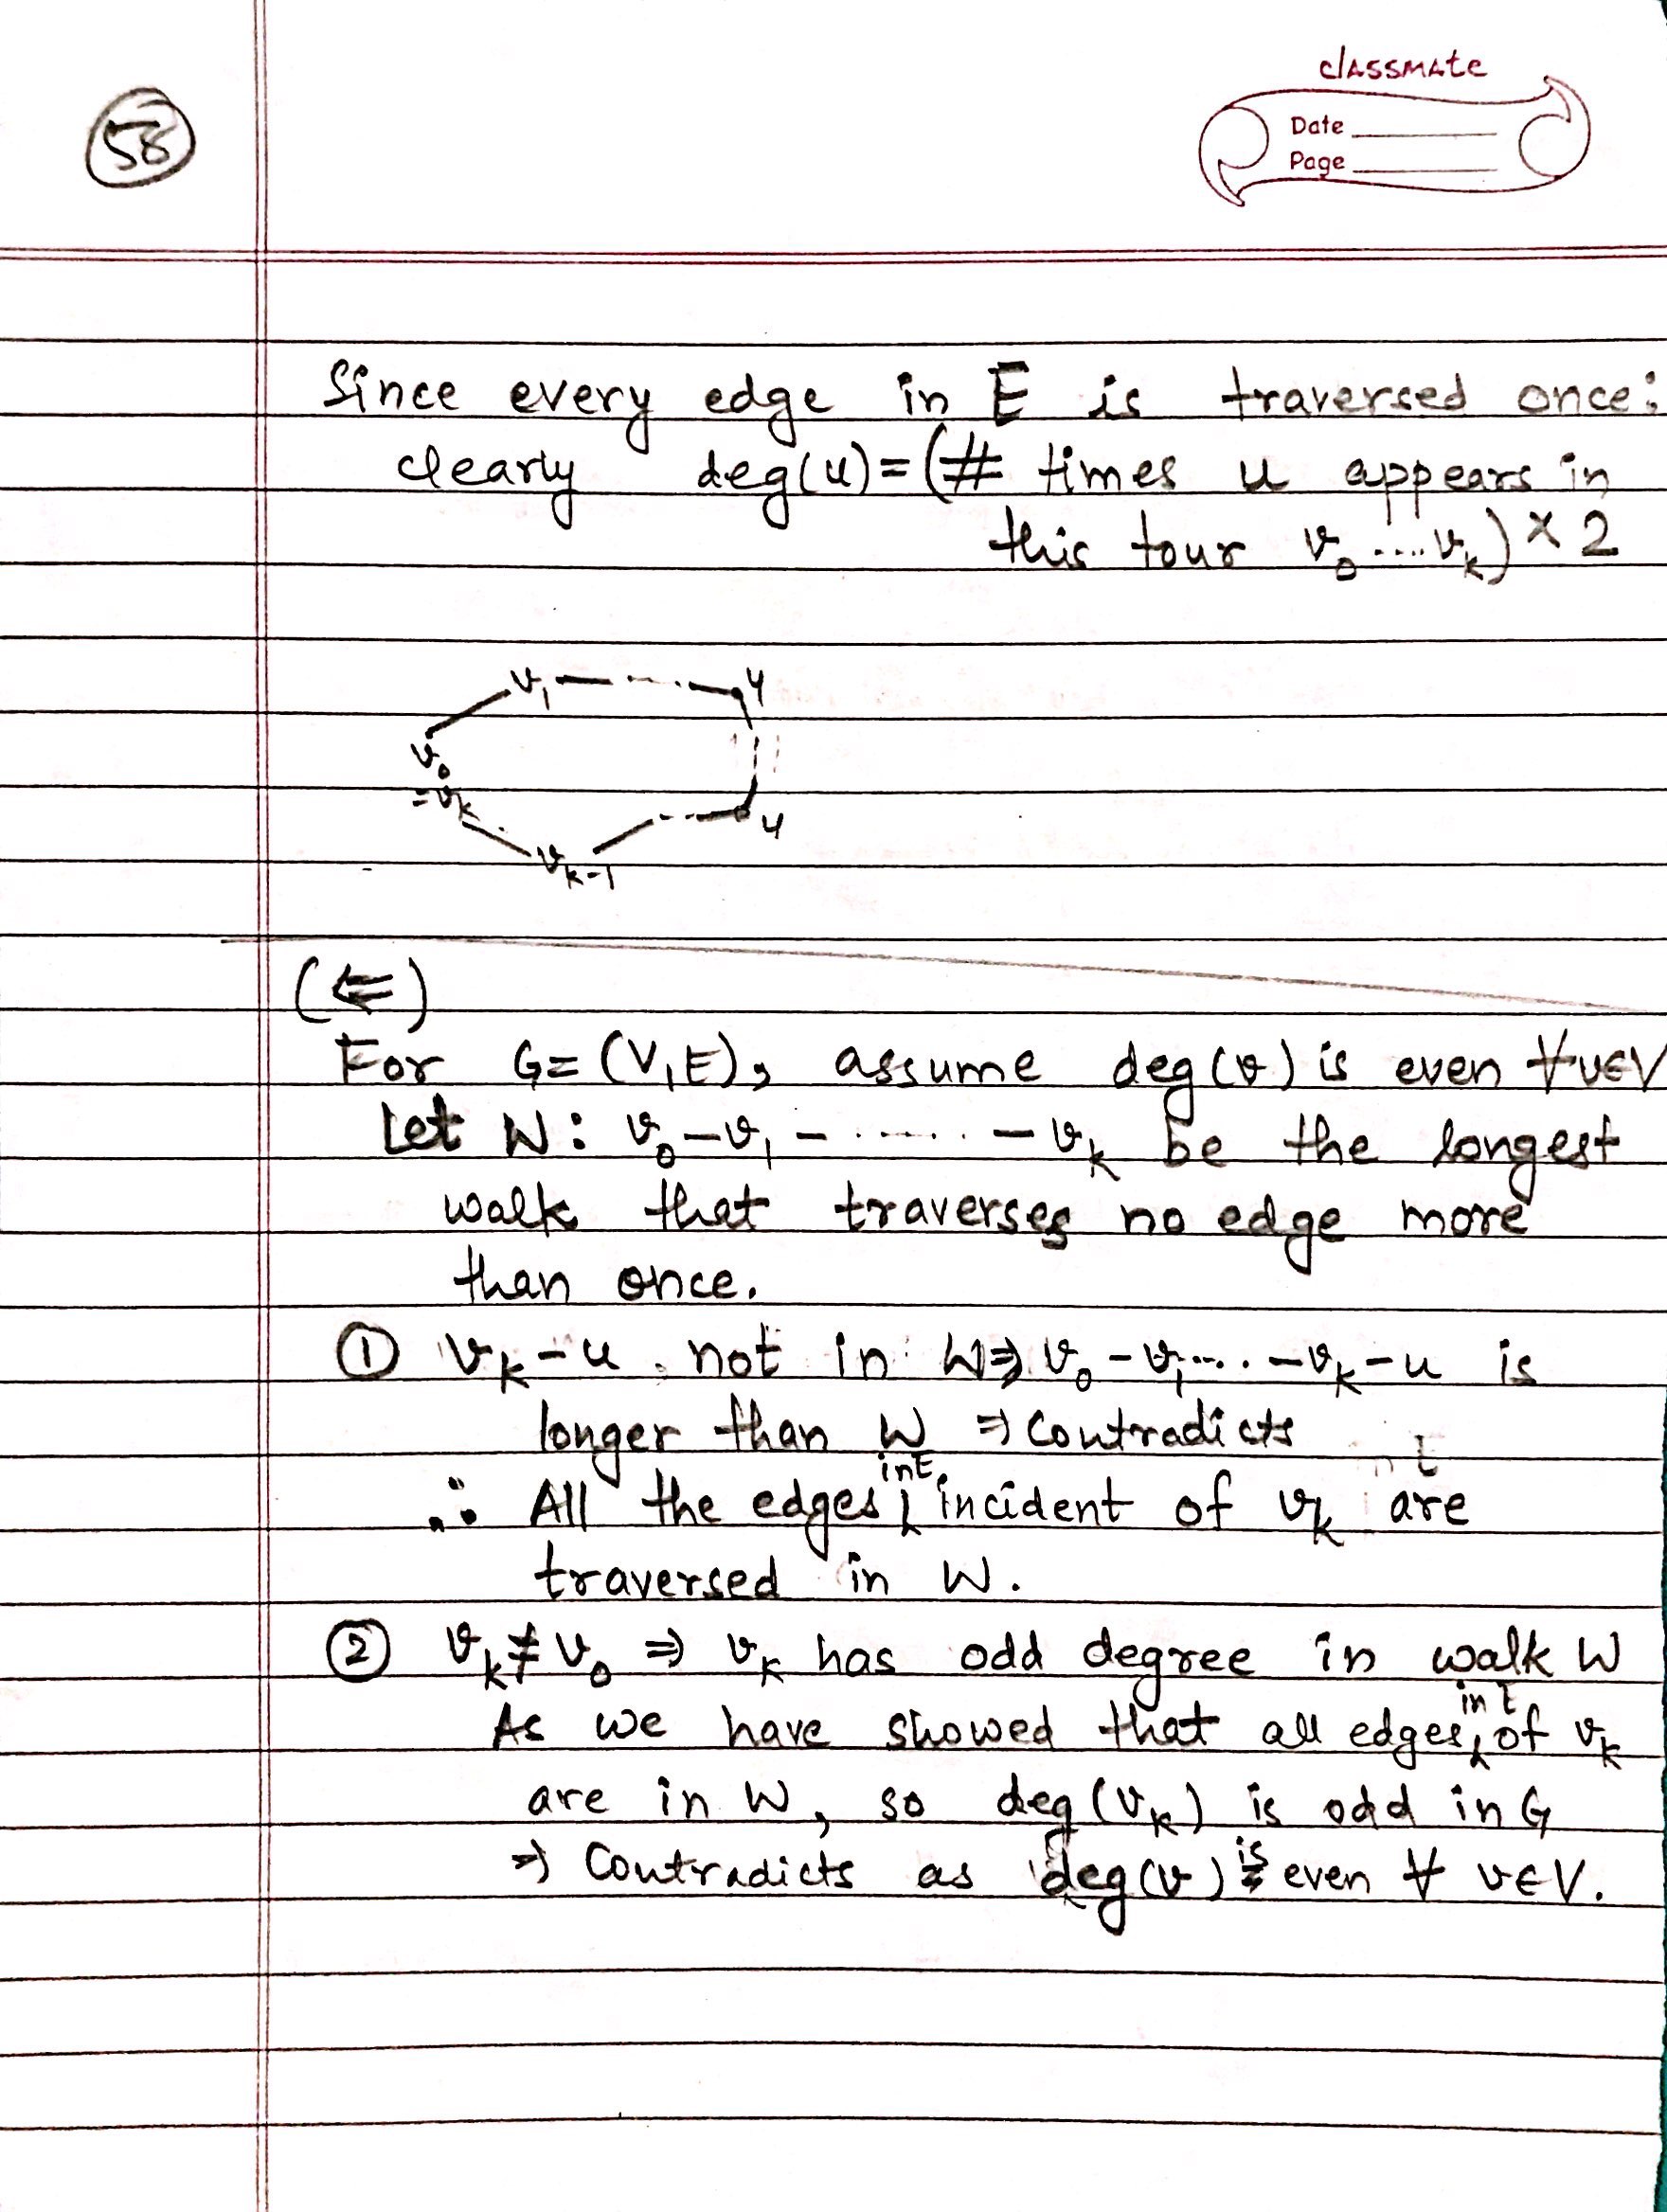 58
classmate
Date
Page
Since every edge in E is traversed once:
clearly deg(u) = (# times u appears in
this tour v₀ ..... vₖ) × 2
v₁ u
v₀
=vₖ
u
vₖ₋₁
(⇐)
For G= (V,E), assume deg(v) is even ∀v∈V
Let W: v₀ – v₁ – ...... – vₖ be the longest
walk that traverses no edge more
than once.
① vₖ – u not in W ⇒ v₀ – v₁ .... – vₖ – u is
longer than W ⇒ Contradicts
∴ All the edges in E incident of vₖ are
traversed in W.
② vₖ ≠ v₀ ⇒ vₖ has odd degree in walk W
As we have showed that all edges in E of vₖ
are in W, so deg (vₖ) is odd in G
⇒ Contradicts as deg(v) is even ∀ v∈V.